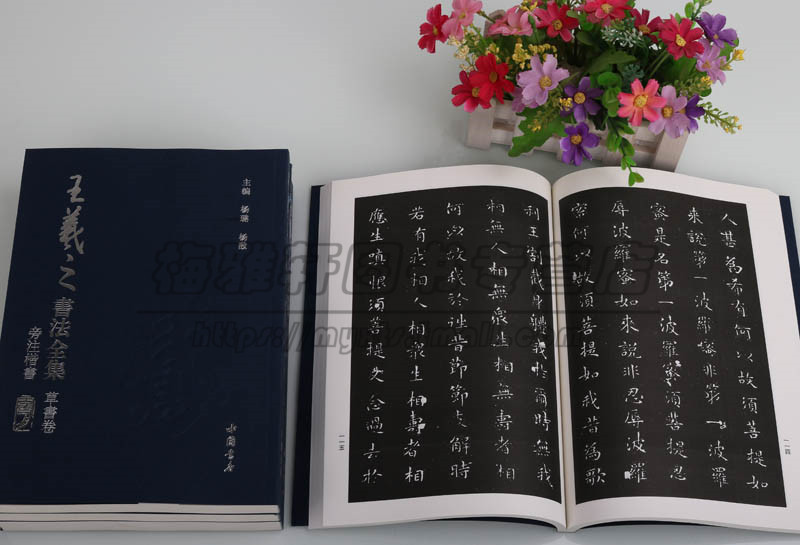 王羲之
書法全集
旁注楷書
草書卷
主编
人甚為希有何以故須菩提如
來說第一波羅蜜非第一波羅
蜜是名第一波羅蜜須菩提忍
辱波羅蜜如來說非忍辱波羅
蜜何以故須菩提如我昔為歌
一一四
利王割截身體我於爾時無我
相無人相無衆生相無壽者相
何以故我於往昔節節支解時
若有我相人相衆生相壽者相
應生嗔恨須菩提又念過去於
一一五
梅雅轩图书专营店